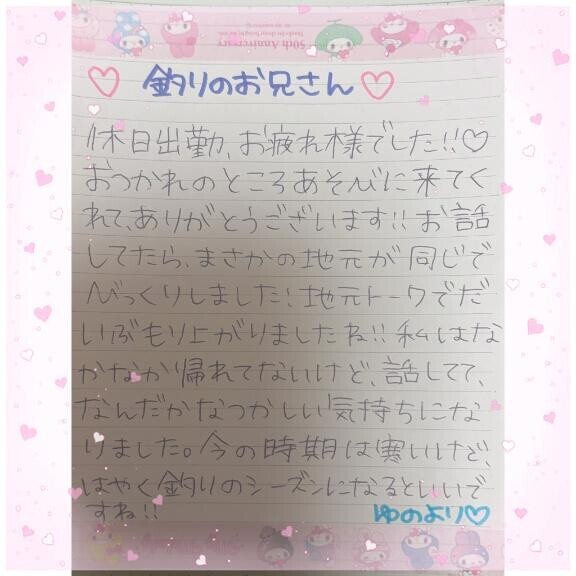 50th Anniversary
♡ 釣りのお兄さん ♡
休日出勤、お疲れ様でした!!♡
おつかれのところあそびに来てく
れて、ありがとうございます!!お話
してたら、まさかの地元が同じで
びっくりしました!地元トークでだ
いぶもり上がりましたね!!私はな
かなか帰れてないけど、話してて、
なんだかなつかしい気持ちにな
りました。今の時期は寒いけど、
はやく釣りのシーズンになるといいで
すね!!
ゆのより♡